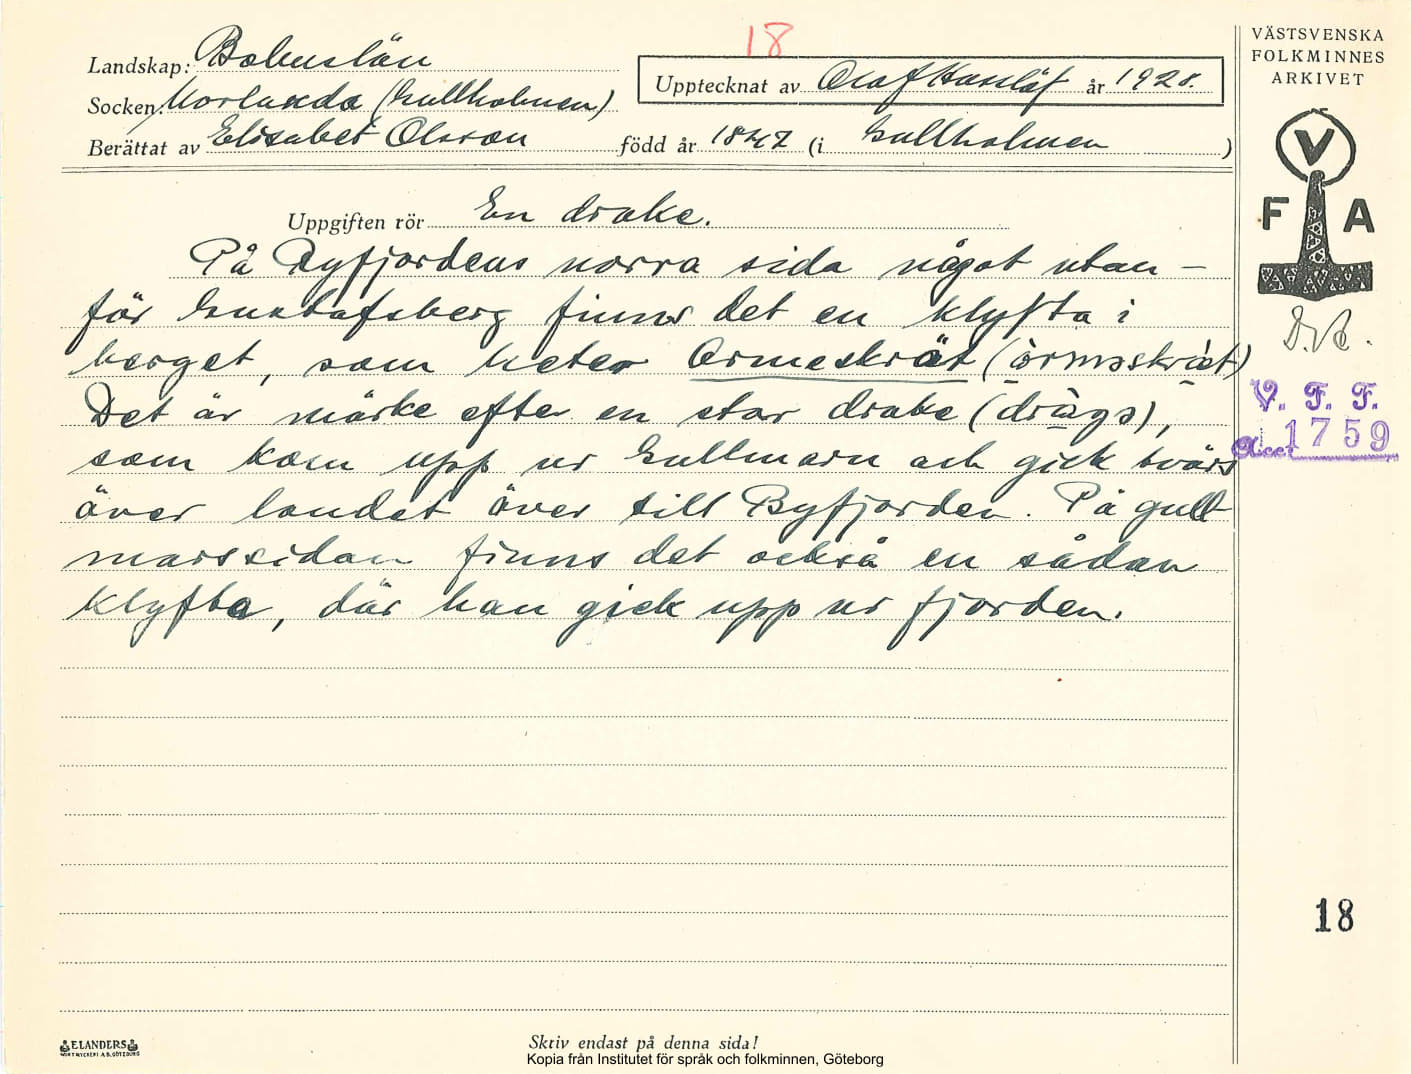 18
Landskap: Bohuslän
Upptecknat av Olaf Hasslöf år 1928.
Socken: Morlanda (Gullholmen)
Berättat av Elisabet Olsson född år 1847 (i Gullholmen)
Uppgiften rör En drake.
På Byfjordens norra sida något utan-
för Gustafsberg finns det en klyfta i
berget, som heter Ormeskrät (òrməskrät)
Det är märke efter en stor drake (dràgə),
som kom upp ur Gullmarn och gick tvärs
över landet över till Byfjorden. På gull
marssidan finns det också en sådan
klyfta, där han gick upp ur fjorden.
VÄSTSVENSKA
FOLKMINNES
ARKIVET
V
F A
V. F. F.
Acc: 1759
18
ELANDERS
BOKTRYCKERI A.B. GÖTEBORG
Skriv endast på denna sida!
Kopia från Institutet för språk och folkminnen, Göteborg